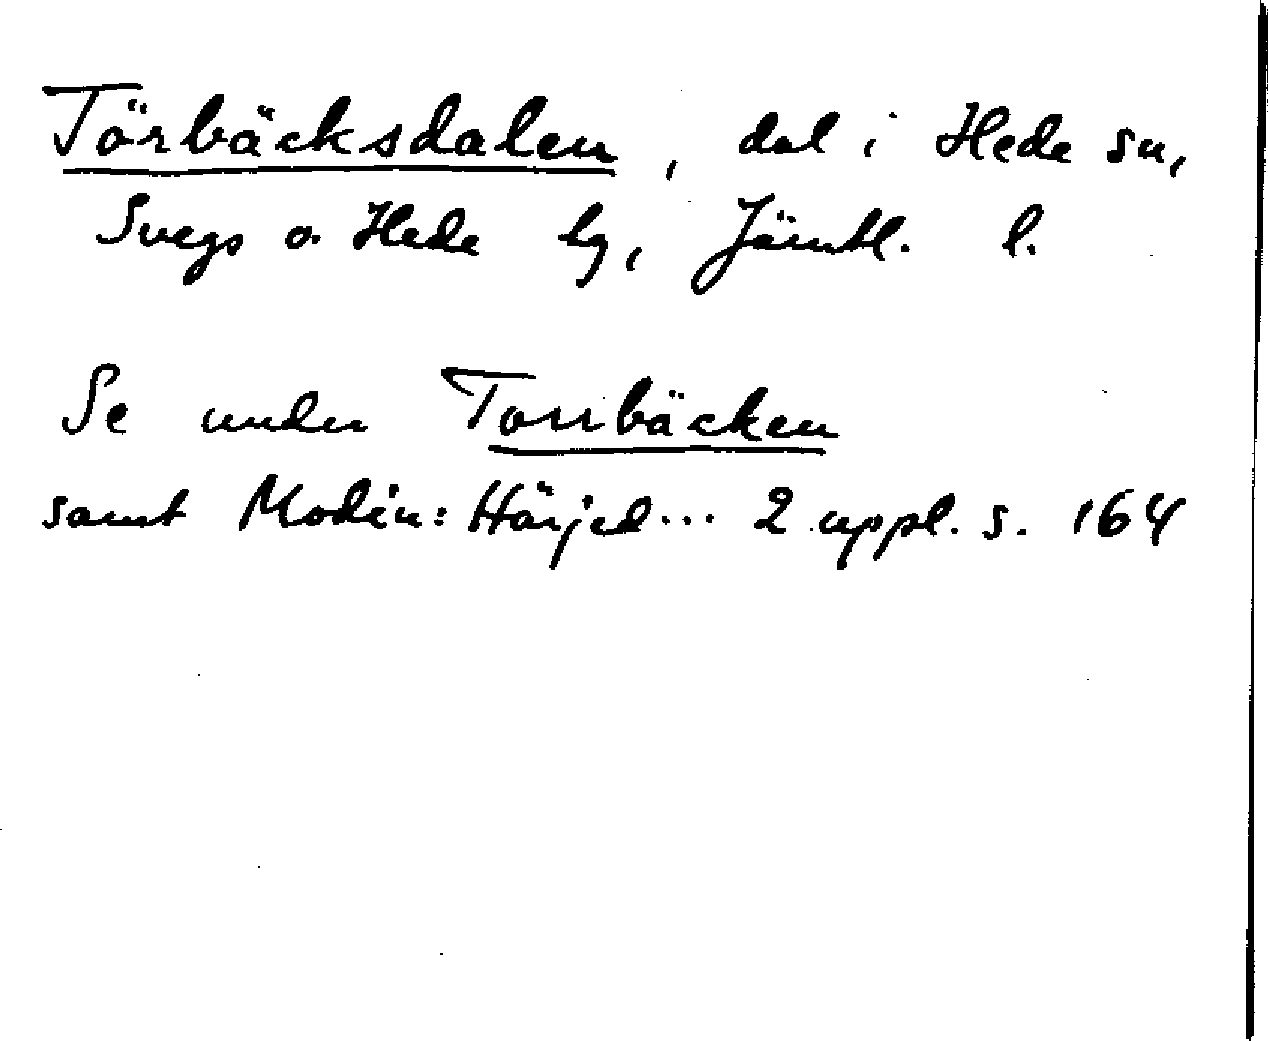 Törbäcksdalen, dal i Hede sn,
Svegs o. Hede tg, Jämtl. l.
Se under Torrbäcken
samt Modin: Härjed... 2 uppl. s. 164